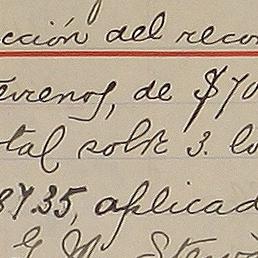 cción del recon
terrenos, de $70
otal sobre 3. lo
8735, aplicad
G. M. Stew